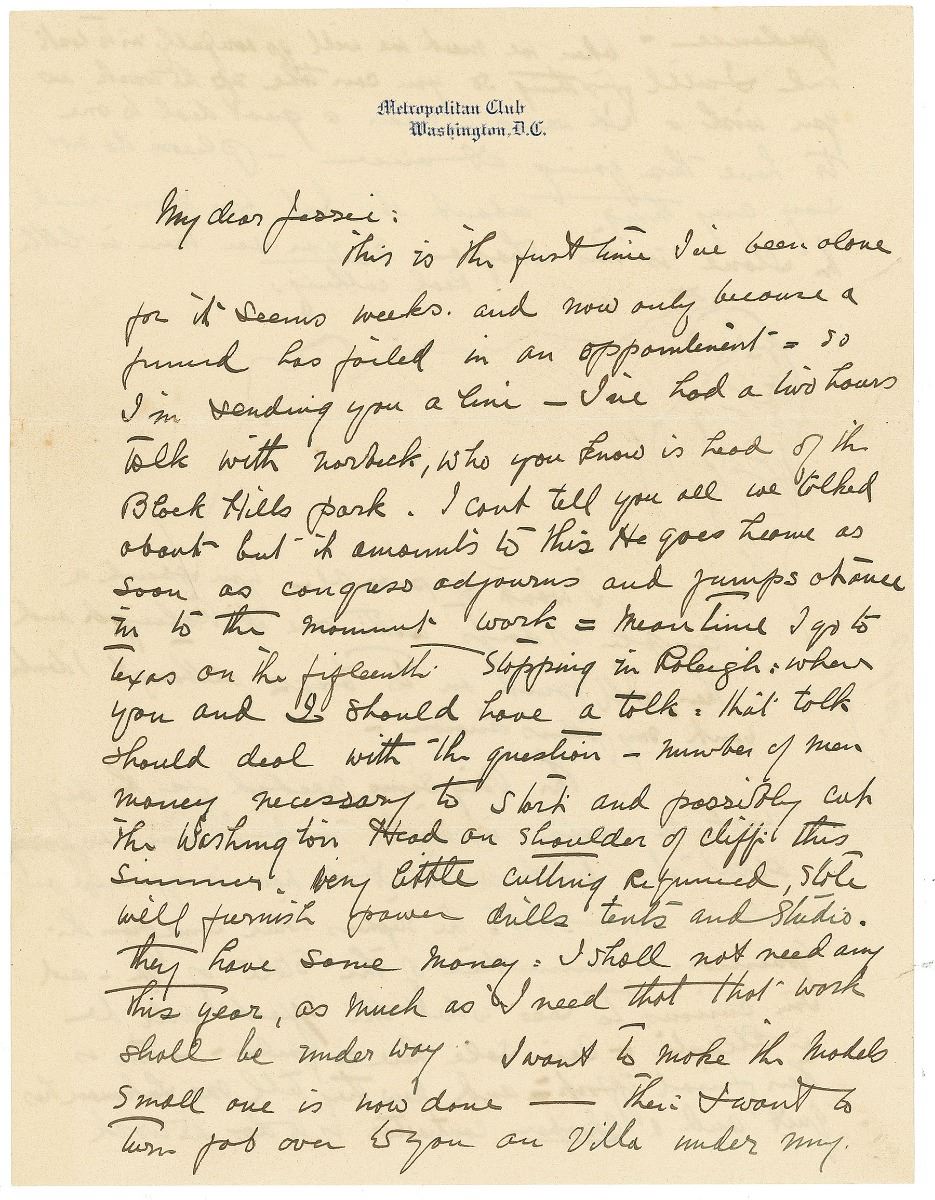 Metropolitan Club
Washington, D.C.
My dear Jessie:
This is the first time I've been alone
for it seems weeks. and now only because a
friend has failed in an appointment = so
I'm sending you a line – I've had a two hours
talk with norbeck, who you know is head of the
Black Hills park. I cant tell you all we talked
about but it amounts to this He goes home as
soon as congress adjourns and jumps at once
in to the monument work = Meantime I go to
Texas on the fifteenth Stopping in Raleigh: where
you and I should have a talk: that talk
should deal with the question – number of men
money necessary to start and possibly cut
the Washington Head on shoulder of cliff: this
summer. Very little cutting required, state
will furnish power drills tents and studio.
they have some money: I shall not need any
this year, as much as I need that that work
shall be under way I want to make the models
small one is now done — then I want to
turn job over to you an Villa under my.